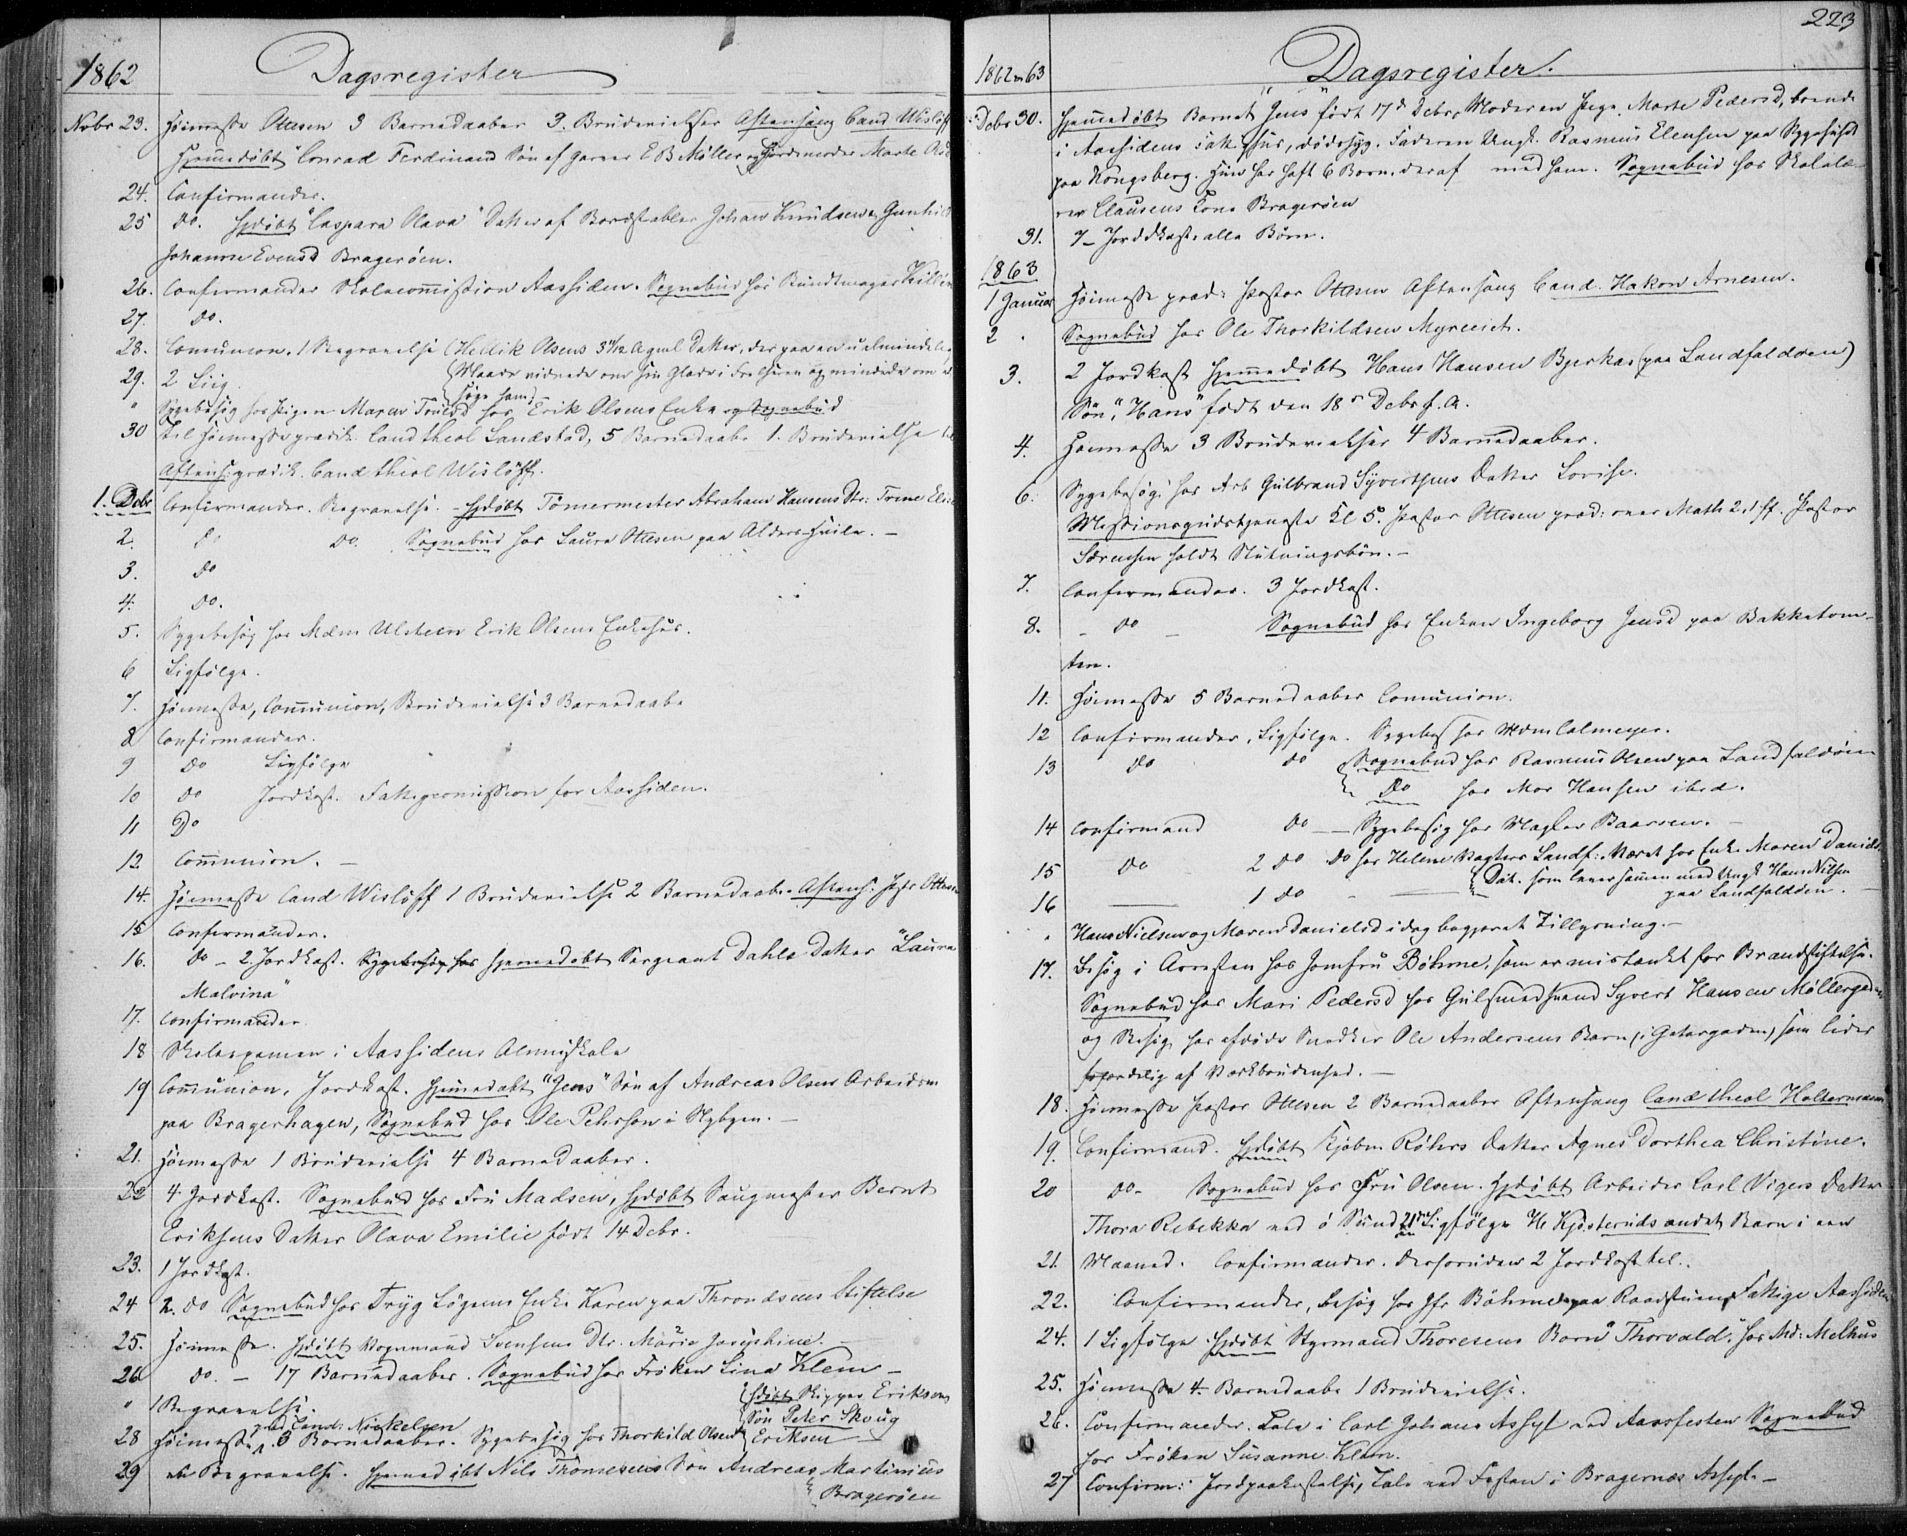 1862
Dagsregister
Novbr 23. Høimesse Ottesen 3 Barnedaaber 3. Brudevielser Aftensang Cand Wisløff
Hjemmedøbt "Conrad Ferdinand Søn af Garver E B Møller og Jordemoder Marte
24. Confirmander.
25 do. Hjdøbt "Caspara Olava" Datter af Bordstabler Johan Knudsen & Gunhild
Johanne Evensd Bragerøen.
26. Confirmander Skolecommission Aassiden. Sognebud hos Bundtmager
27. do.
28. Comunion. 1 Begravelse (Hellik Olsens 3 1/12 Aar gml Datter, der paa en ualmindelig
29. 2 Liig. Maade vidnede om sin Glæde i Frelseren og mindede om at
søge ham)
" Sygebesøg hos Pigen Maren Trulsd hos Erik Olsens Enke og Sognebud
30 Til Høimesse prædik. Cand theol Landstad, 5 Barnedaabe 1. Brudevielse til
Aftens: prædik. Cand theol Wisløff.
1. Debr Confirmander. Begravelse. - Hjdøbt Tømermester Abraham Hansens Dtr: Trine
2. do do. Sognebud hos Laura Ottesen paa Alders Hvile. -
3. do
4. do.
5. Sygebesøg hos Mdm Ulsteen Erik Olsens Enkehus.
6 Ligfølge.
7. Høimesse, Communion, Brudevielse 3 Barnedaabe
8 Confirmander.
9 do Ligfølge
10 do Jordkast. Fattigcommission for Aassiden.
11 Do
12 Communion. -
14. Høimesse Cand Wisløff 1 Brudevielse 2 Barnedaabe. Aftens: Pastor Ottesen
15 Confirmander.
16. do - 2 Jordkast. Sygebesøg hos Hjemmedøbt Sergeant Dahls Datter "Laura
Malvina"
17. Confirmander
18 Skoleexamen i Aassidens Almuskole
19 Communion. Jordkast. Hjemmedøbt "Jens" Søn af Andreas Olsen Arbeidsm
paa Bragerhagen, Sognebud hos Ole Pehrson i Nybyen. -
21. Høimesse 1 Brudevielse 4 Barnedaaber.
22 4 Jordkast. Sognebud hos Fru Madsen, Hjdøbt Saugmester Bernt
Eriksens Datter Olava Emilie født 14 Debr.
23. 1 Jordkast.
24 2. do Sognebud hos Tryg Løgens Enke Karen paa Throndsens Stiftelse
25. Høimesse. Hjdøbt Vognmand Svensens Dtr. Marie Josephine. -
26 do. - 17 Barnedaaber. Sognebud hos Frøken Lina Klem -
" 1 Begravelse. Hjdøbt Skipper Eriksens
ved Cand: Nickelsen Søn Peter Skoug
28 Høimesse 3 Barnedaaber. Sygebesøg hos Thorkild Olsen Eriksen
29 Begravelse. Hjemmedøbt Nils Thomesens Søn Andreas Martinius
Bragerøen
223
1862 - 63
Dagsregister.
Debr 30. Hjemmedøbt Barnet "Jens" født 17de Debr, Moderen Pige Marte Pedersd, boende
i Aassidens Fattighus, dødssyg. Faderen Ungk. Rasmus Elensen paa Sygehuset
paa Kongsberg. Hun har havt 6 Børn deraf med ham. Sognebud hos Skolelæ
rer Clausens Kone Bragerøen
31. 7 - Jordkast alle Børn.
1863
1 Januar Høimesse præd: Pastor Ottesen Aftensang Cand. Hakon Arnesen.
2 . Sognebud hos Ole Thorkildsen Myrveien.
3. 2 Jordkast Hjemmedøbt Hans Hansen Bjerkas (paa Landfaldøen)
Søn, "Hans" født den 18de Debr f. A.
4. Høimesse 3 Brudevielser 4 Barnedaaber.
6. Sygebesøg: hos Arb Gulbrand Syvertsens Datter Lovise.
Missionsgudstjeneste Kl 5. Pastor Ottesen præd: over Math 2, 1 ff. Pastor
Sørensen holdt Slutningsbøn. -
7. Confirmander. 3 Jordkast.
8. - do - Sognebud hos Enken Ingeborg Jensd paa Bakketom-
ten.
11. Høimesse 5 Barnedaaber Comunion.
12 Confirmander, Ligfølge. Sygebes hos Mdm Calmeyer.
13 do do Sognebud hos Rasmus Olsen paa Landfaldøen
Do hos Mor Hansen ibid.
14 Confirmand do - Sygebesøg hos Baarsen. -
15 do 2 do do hos Helene Landf: Været hos Enke Maren Daniels
Dat. som lever sammen med Ungk Hans Nilsen
16 — 1 do — paa Landfaldøen. -
" Hans Nielsen og Maren Danielsd idag begjæret Tillysning. -
17. Besøg i Arresten hos Jomfru Böhme, som er mistænkt for Brandstiftelse.
Sognebud hos Mari Pedersd hos Gulsmedsvend Syvert Hansen Møllergaden
og Besøg hos afdøde Snedker Ole Andersens Barn (i Gjetergaden) som lider
af Værkbrudenhed. -
18. Høimesse Pastor Ottesen 2 Barnedaaber Aftensang Cand theol Haltermann
19. Confirmand. Hjdøbt Kjøbm Røhrs Datter Agnes Dorthea Christine.
20 do - Sognebud hos Fru Olsen. Hjdøbt Arbeider Carl Vigers Datter
Thora Rebekka ved ö Sund 21de Ligfølge H Kjøsteruds andet Barn i een
21. Maaned. Confirmander. desforuden 2 Jordkastelse.
22. Confirmander, Besøg hos Jfr Böhme paa Raadstuen, Fattige Aassiden
24. 1 Ligfølge. Hjdøbt Styrmand Thoresens Barn "Thorvald", hos Md: Melhus
25. Høimesse 4 Barnedaabe 1 Brudevielse.
26. Confirmander. Tale i Carl Johans Asyl ved Aarsfesten Sognebud
hos Frøken Susanne Klem.
27 Confirm: Jordpaakastelse, Tale ved Festen i Bragernæs Asyl. -